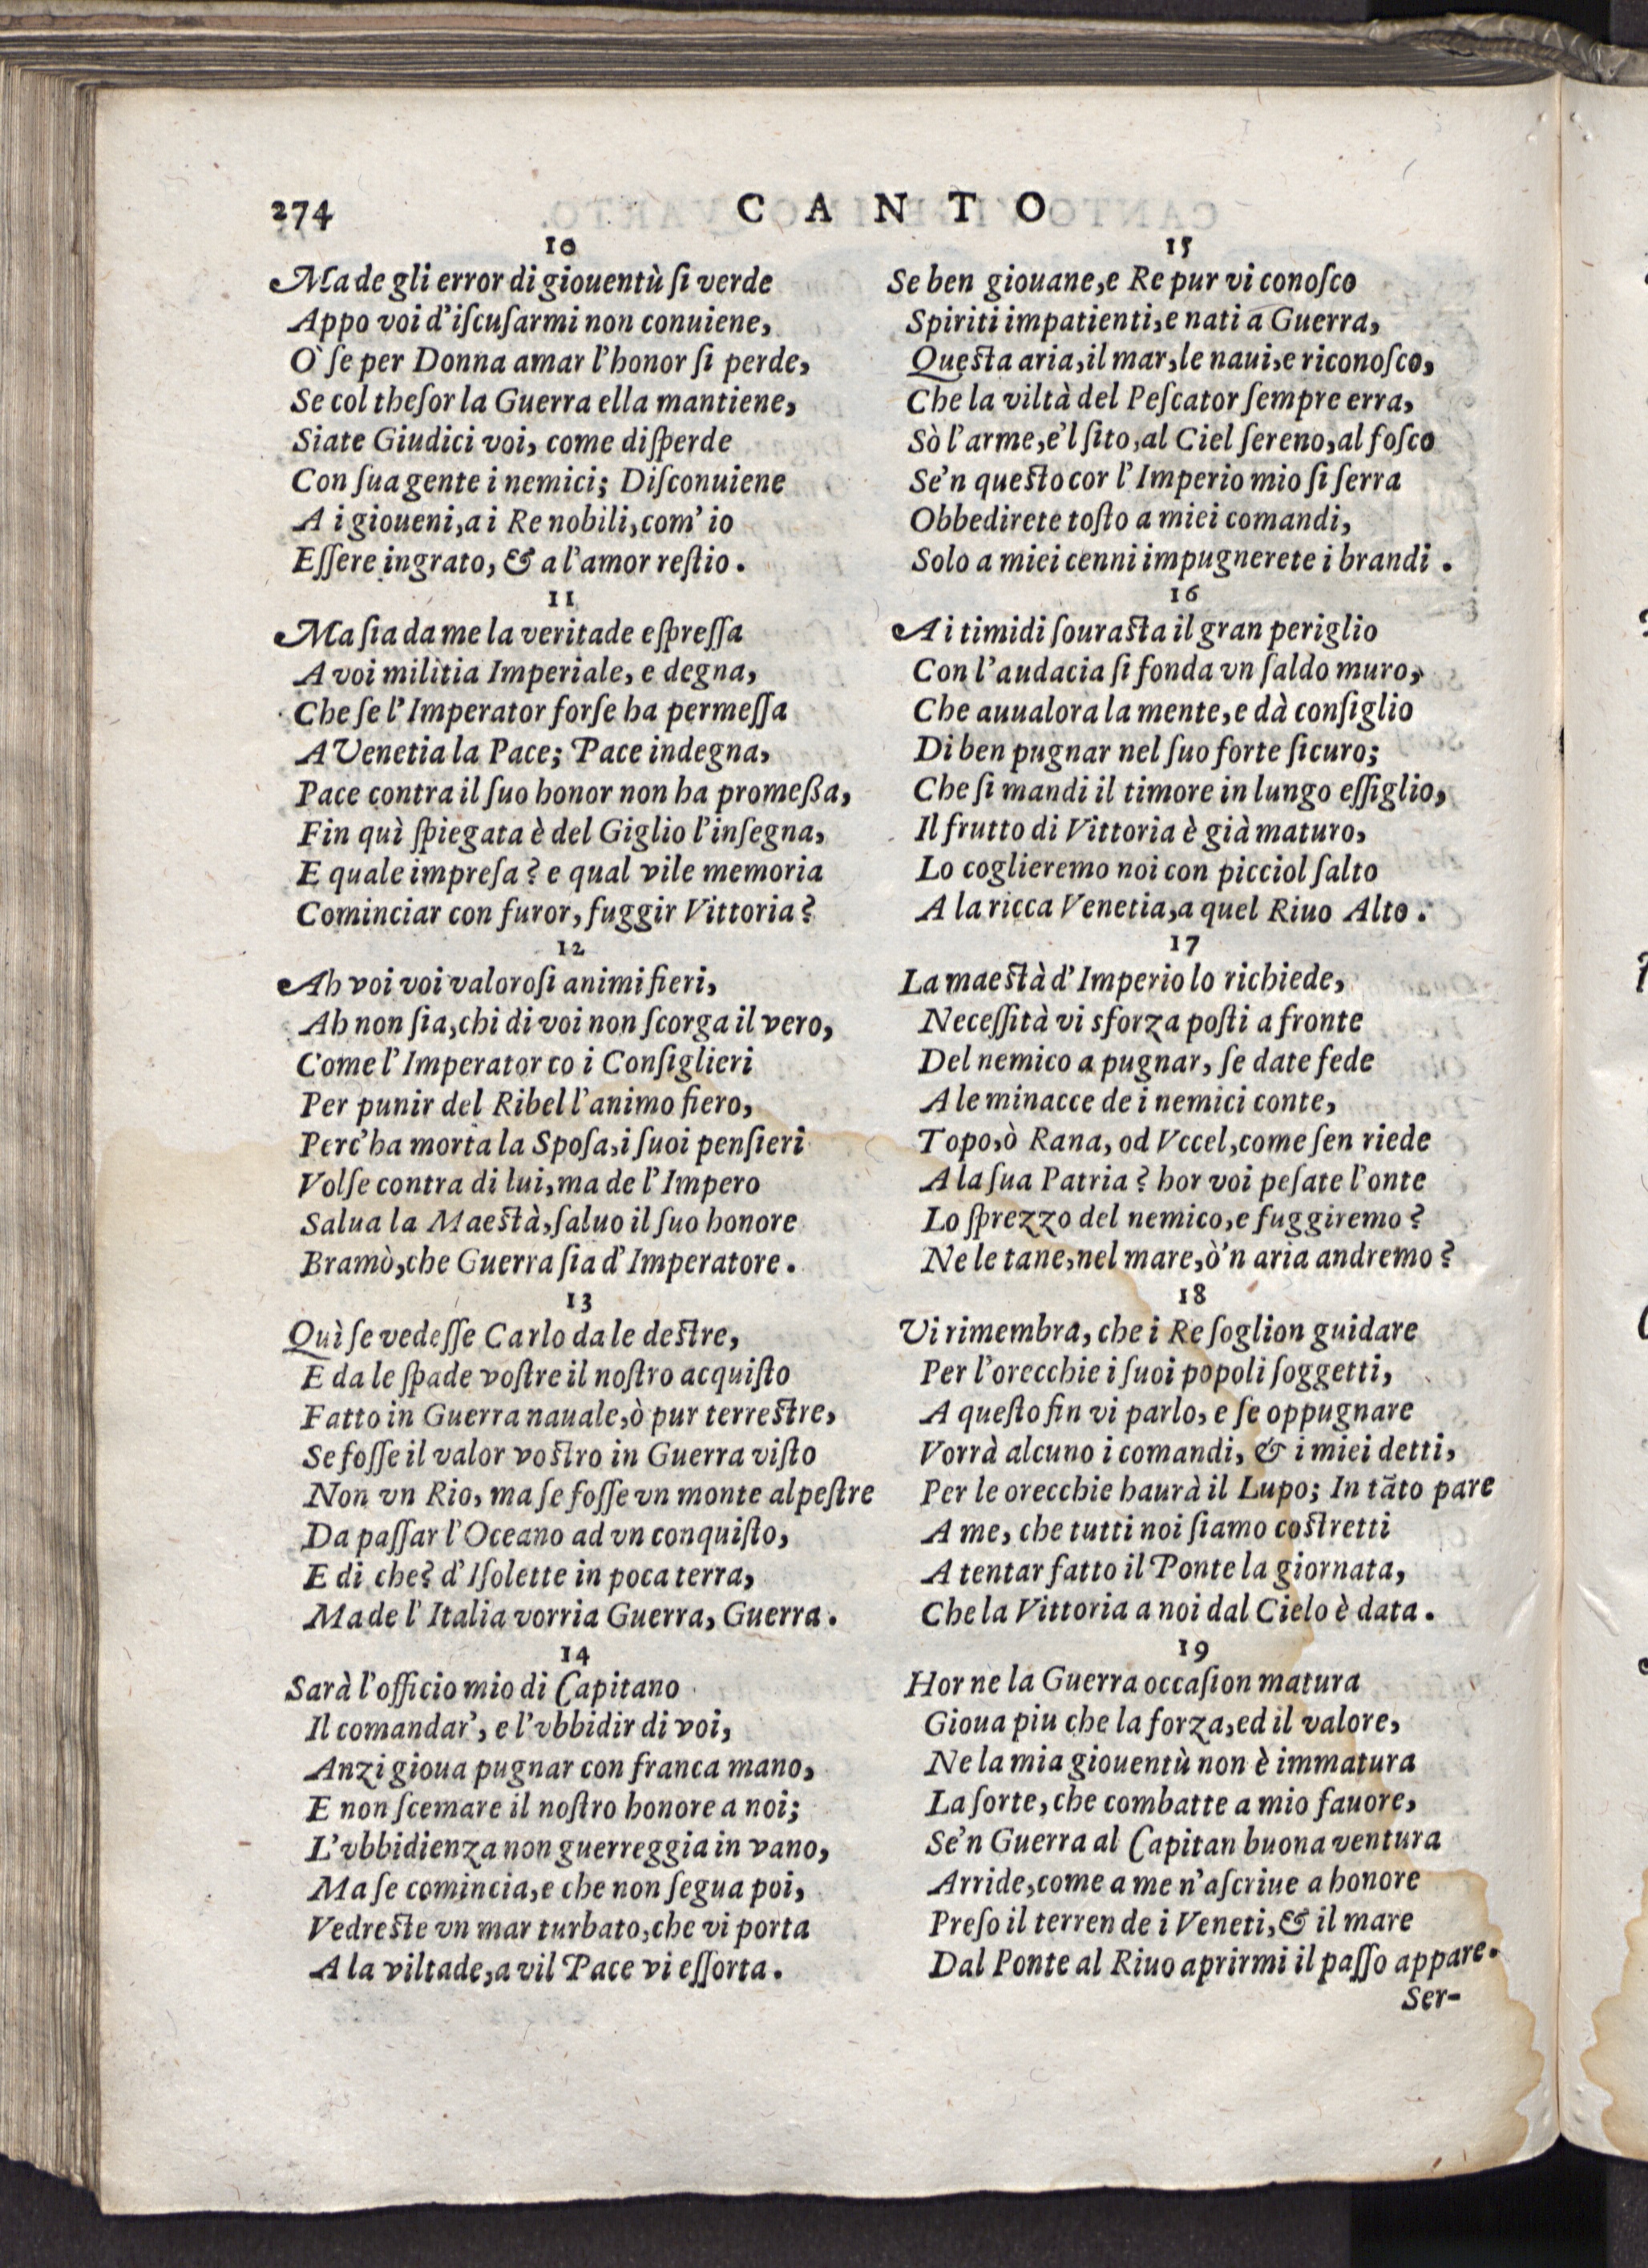 274
CANTO
10
Ma de gli error di giouentù ſi verde
Appo voi d'iſcuſarmi non conuiene,
O ̀ſe per Donna amar l'honor ſi perde,
Se col theſor la Guerra ella mantiene,
Siate Giudici voi, come diſperde
Con ſua gente i nemici; Diſconuiene
A i gioueni, a i Re nobili, com' io
Eſſere ingrato, & a l'amor reſtio.
11
Ma ſia da me la veritade eſpreſſa
A voi militia Imperiale, e degna,
Che ſe l'Imperator forſe ha permeſſa
A Venetia la Pace; Pace indegna,
Pace contra il ſuo honor non ha promeßa,
Fin quì ſpiegata è del Giglio l'inſegna,
E quale impreſa? e qual vile memoria
Cominciar con furor, fuggir Vittoria?
12
Ah voi voi valoroſi animi fieri,
Ah non ſia, chi di voi non ſcorga il vero,
Come l'Imperator co i Conſiglieri
Per punir del Ribel l'animo fiero,
Perc'ha morta la Spoſa, i ſuoi penſieri
Volſe contra di lui, ma de l'Impero
Salua la Maeſtà, ſaluo il ſuo honore
Bramò, che Guerra ſia d'Imperatore.
13
Quì ſe vedeſſe Carlo da le deſtre,
E da le ſpade voſtre il noſtro acquiſto
Fatto in Guerra nauale, ò pur terreſtre,
Se foſſe il valor voſtro in Guerra viſto
Non vn Rio, ma ſe foſſe vn monte alpeſtre
Da paſſar l'Oceano ad vn conquiſto,
E di che? d'Iſolette in poca terra,
Ma de l'Italia vorria Guerra, Guerra.
14
Sarà l'officio mio di Capitano
Il comandar', e l'vbbidir di voi,
Anzi gioua pugnar con franca mano,
E non ſcemare il noſtro honore a noi;
L'vbbidienza non guerreggia in vano,
Ma ſe comincia, e che non ſegua poi,
Vedreſte vn mar turbato, che vi porta
A la viltade, a vil Pace vi eſſorta.
15
Se ben giouane, e Re pur vi conoſco
Spiriti impatienti, e nati a Guerra,
Queſta aria, il mar, le naui, e riconoſco,
Che la viltà del Peſcator ſempre erra,
Sò l'arme, e'l ſito, al Ciel ſereno, al foſco
Se'n queſto cor l'Imperio mio ſi ſerra
Obbedirete toſto a miei comandi,
Solo a miei cenni impugnerete i brandi.
16
A i timidi ſouraſta il gran periglio
Con l'audacia ſi fonda vn ſaldo muro,
Che auualora la mente, e dà conſiglio
Di ben pugnar nel ſuo forte ſicuro;
Che ſi mandi il timore in lungo eſſiglio,
Il frutto di Vittoria è già maturo,
Lo coglieremo noi con picciol ſalto
A la ricca Venetia, a quel Riuo Alto.
17
La maeſtà d'Imperio lo richiede,
Neceſſità vi sforza poſti a fronte
Del nemico a pugnar, ſe date fede
A le minacce de i nemici conte,
Topo, ò Rana, od Vccel, come ſen riede
A la ſua Patria? hor voi peſate l'onte
Lo ſprezzo del nemico, e fuggiremo?
Ne le tane, nel mare, ò'n aria andremo?
18
Vi rimembra, che i Re ſoglion guidare
Per l'orecchie i ſuoi popoli ſoggetti,
A queſto fin vi parlo, e ſe oppugnare
Vorrà alcuno i comandi, & i miei detti,
Per le orecchie haurà il Lupo; In tãto pare
A me, che tutti noi ſiamo coſtretti
A tentar fatto il Ponte la giornata,
Che la Vittoria a noi dal Cielo è data.
19
Hor ne la Guerra occaſion matura
Gioua piu che la forza, ed il valore,
Ne la mia giouentù non è immatura
La ſorte, che combatte a mio fauore,
Se'n Guerra al Capitan buona ventura
Arride, come a me n'aſcriue a honore
Preſo il terren de i Veneti, & il mare
Dal Ponte al Riuo aprirmi il paſſo appare.
Ser-